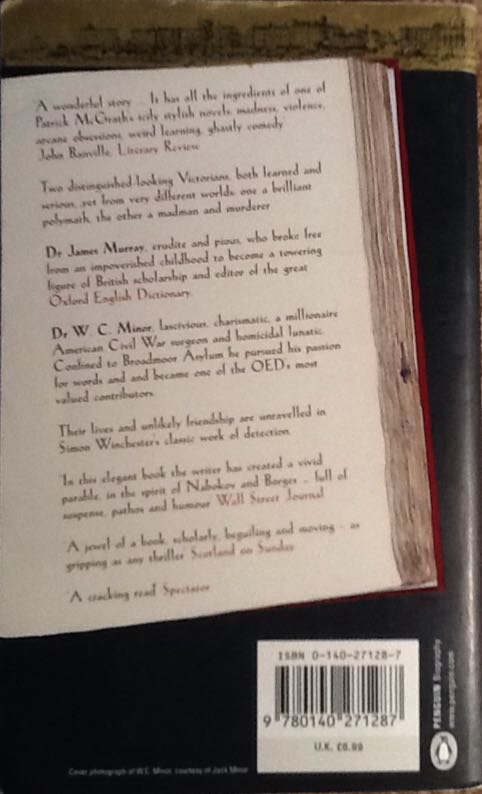 A wonderful story ... It has all the ingredients of one of
Patrick McGrath's icily stylish novels: madness, violence,
arcane obsessions, weird learning, ghastly comedy
John Banville, Literary Review
Two distinguished-looking Victorians, both learned and
serious, yet from very different worlds: one a brilliant
polymath, the other a madman and murderer
Dr James Murray, erudite and pious, who broke free
from an impoverished childhood to become a towering
figure of British scholarship and editor of the great
Oxford English Dictionary.
Dr W. C. Minor, lascivious, charismatic, a millionaire
American Civil War surgeon and homicidal lunatic.
Confined to Broadmoor Asylum he pursued his passion
for words and and became one of the OED's most
valued contributors.
Their lives and unlikely friendship are unravelled in
Simon Winchester's classic work of detection.
'In this elegant book the writer has created a vivid
parable, in the spirit of Nabokov and Borges – full of
suspense, pathos and humour' Wall Street Journal
'A jewel of a book, scholarly, beguiling and moving – as
gripping as any thriller' Scotland on Sunday
'A cracking read' Spectator
ISBN 0-140-27128-7
9 780140 271287
U.K. £6.99
PENGUIN Biography
www.penguin.com
Cover photograph of W.C. Minor, courtesy of Jack Minor